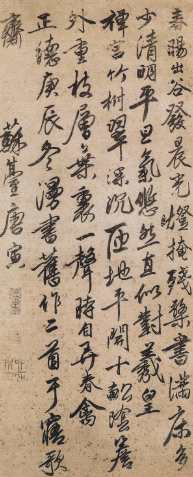 春暘出谷發晨光燈掩殘檠書滿床多
少清明平旦氣悠然直似對羲皇
禪宮竹樹翠深沉匝地平開十畝陰簷
外重枝層葉裏一聲時自弄春禽
正德庚辰冬漫書舊作二首于寤歌
齋 蘇臺唐寅